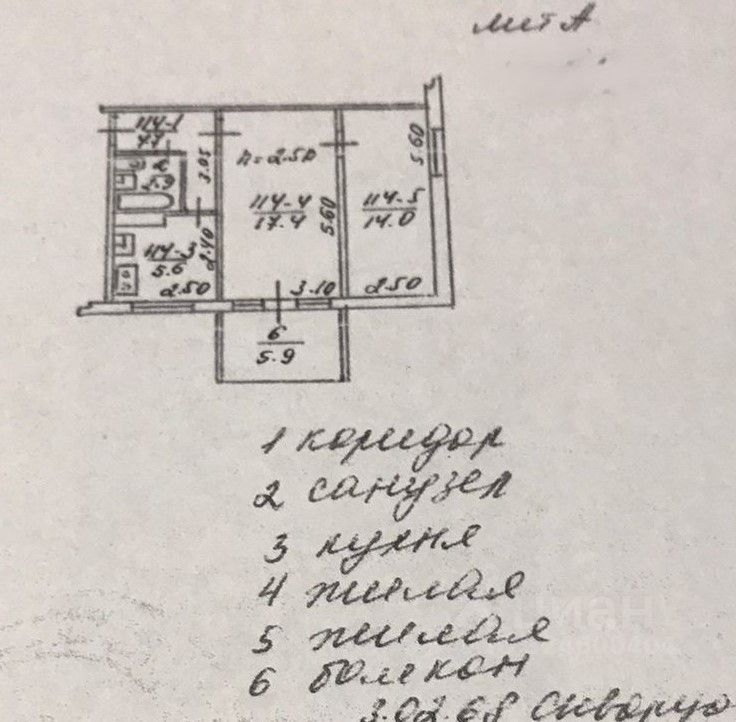 лит А
114-1
7.7
2
2.9
3.05
h=2.50
5.60
114-4
17.4
5.60
114-5
14.0
114-3
5.6
2.40
2.50
3.10
2.50
6
5.9
1 коридор
2 санузел
3 кухня
4 жилая
5 жилая
6 балкон
циан
3.02.68